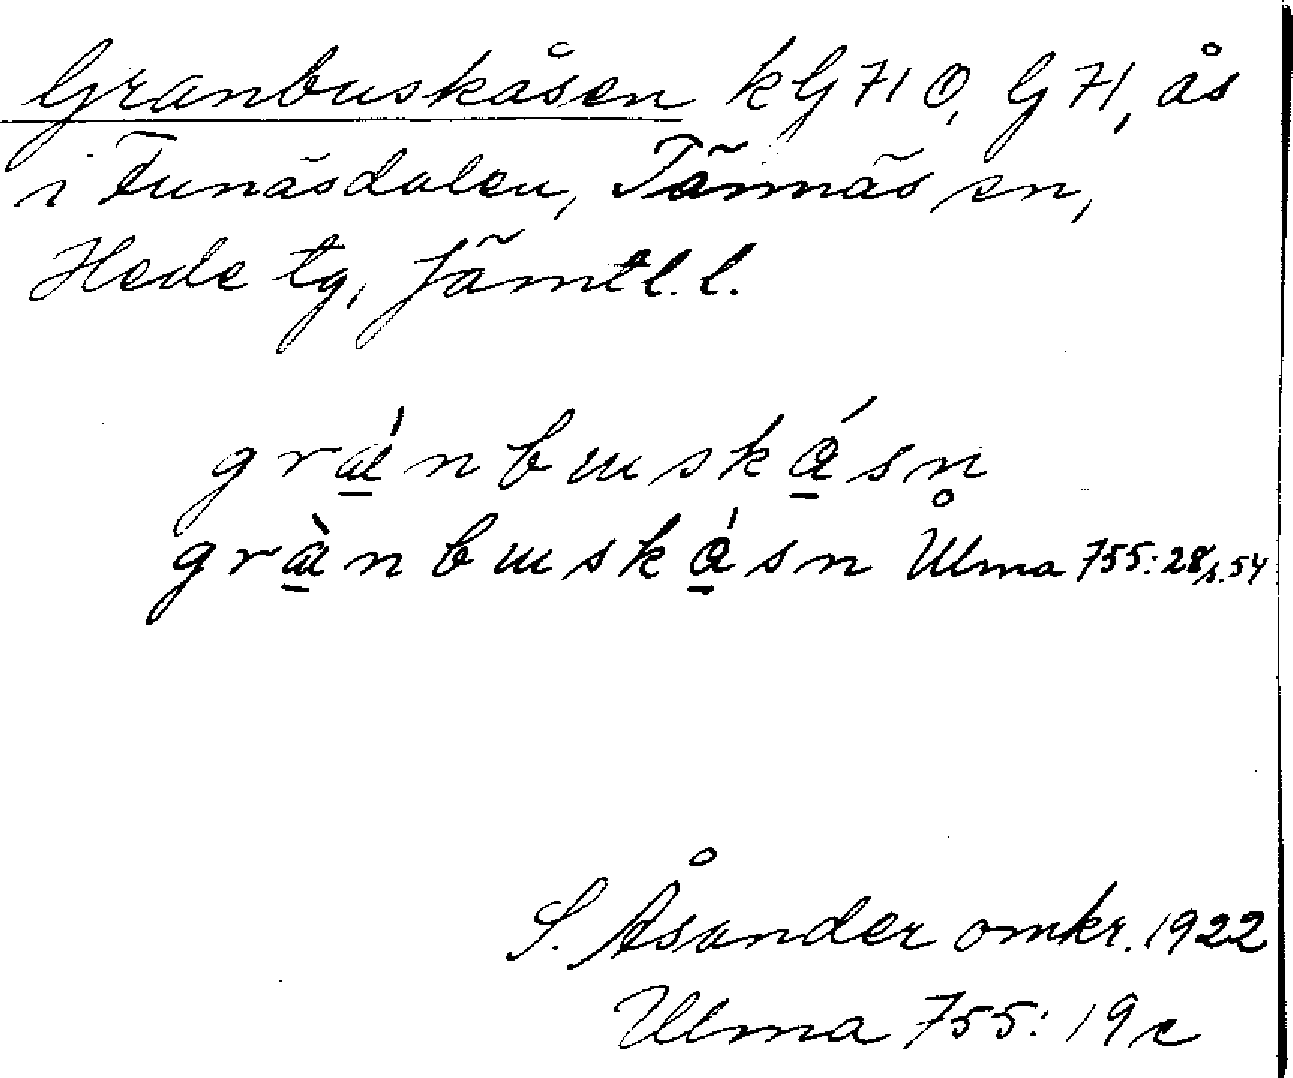 Granbuskåsen kG710, G71, ås
i Funäsdalen, Tännäs sn,
Hede tg, Jämtl. l.
gránbuskásn
grànbuskásn Ulma 755: 28/s.54
S. Åsander omkr. 1922
Ulma 755: 19c